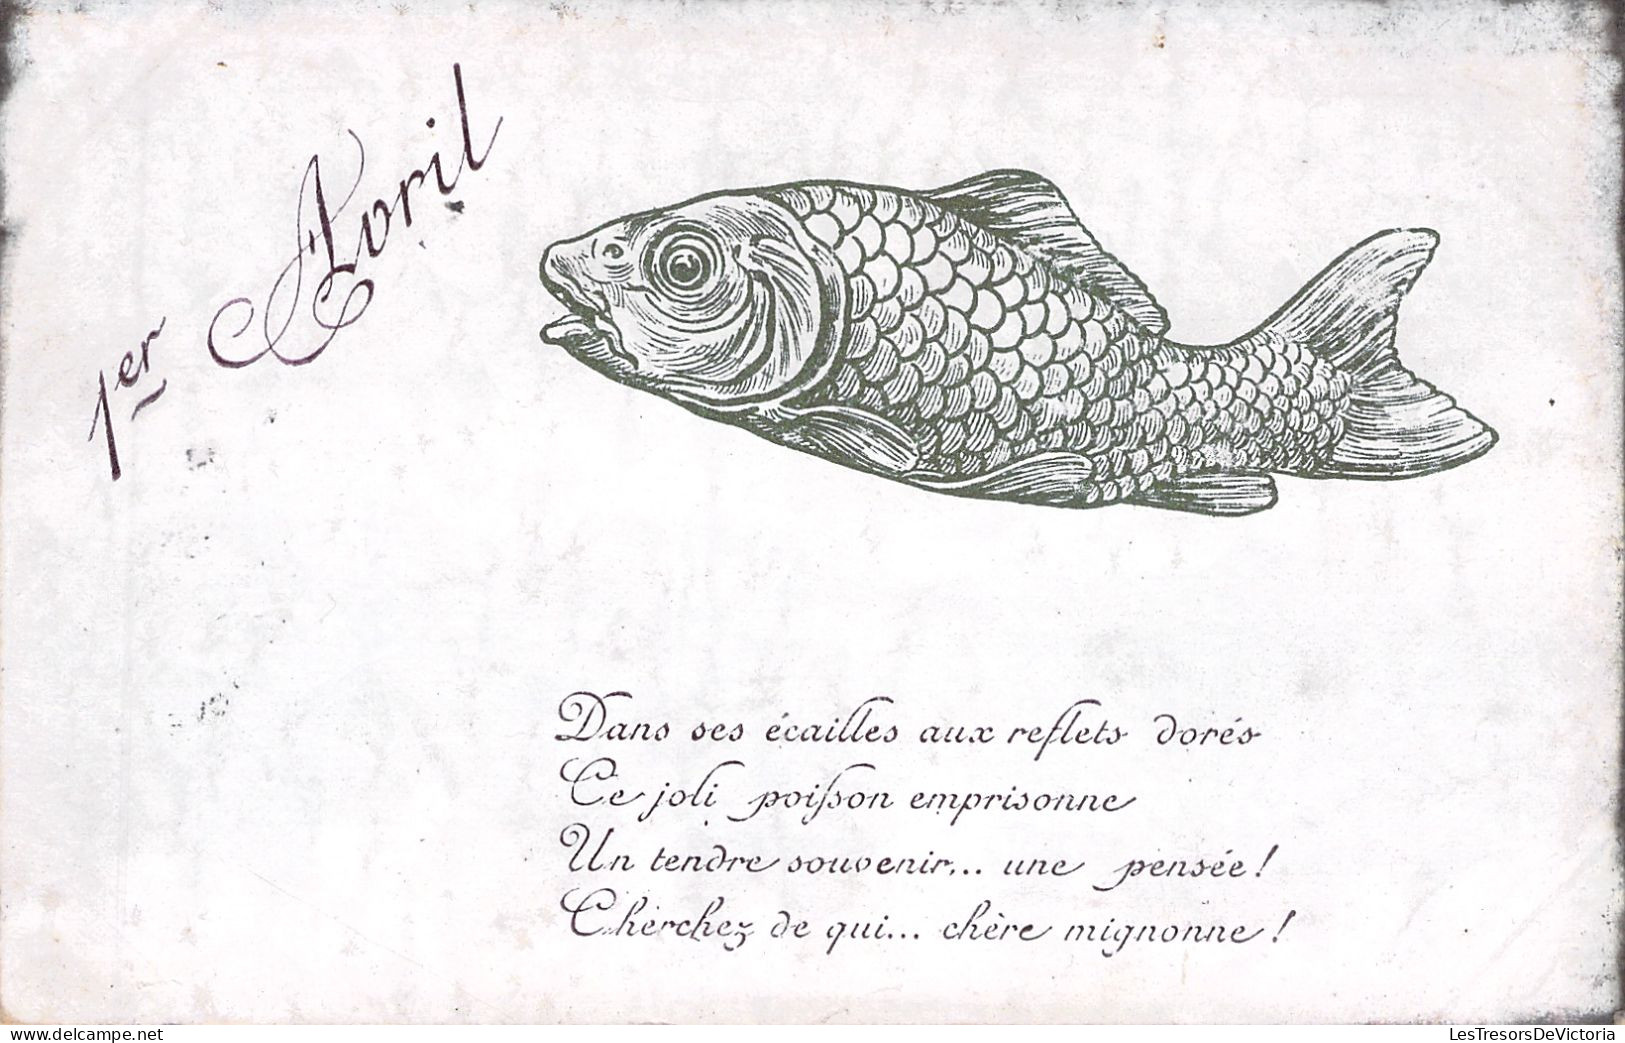 1er Avril
Dans ses écailles aux reflets dorés
Ce joli poisson emprisonne
Un tendre souvenir... une pensée!
Cherchez de qui... chère mignonne!
www.delcampe.net
LesTresorsDeVictoria